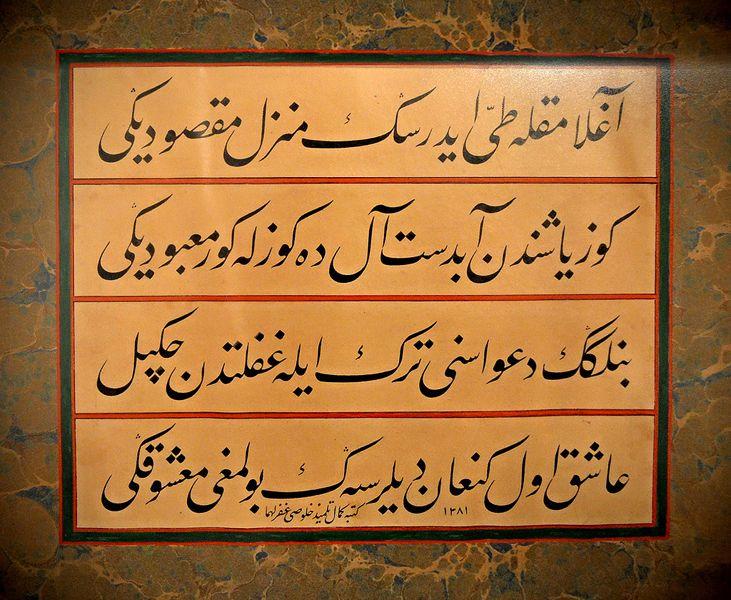 آغلامقله طیّ ایدرسڭ منزل مقصودیڭی
كوز یاشندن آبدست آل ده كوزله كور معبودیڭی
بنلگڭ دعواسنی ترك ایله غفلتدن چكیل
عاشق اول كنعان دیلرسه ڭ بولمغی معشوقڭی
كتبه كمال تلمیذ خلوصی غفر لهما ۱۳۸۱